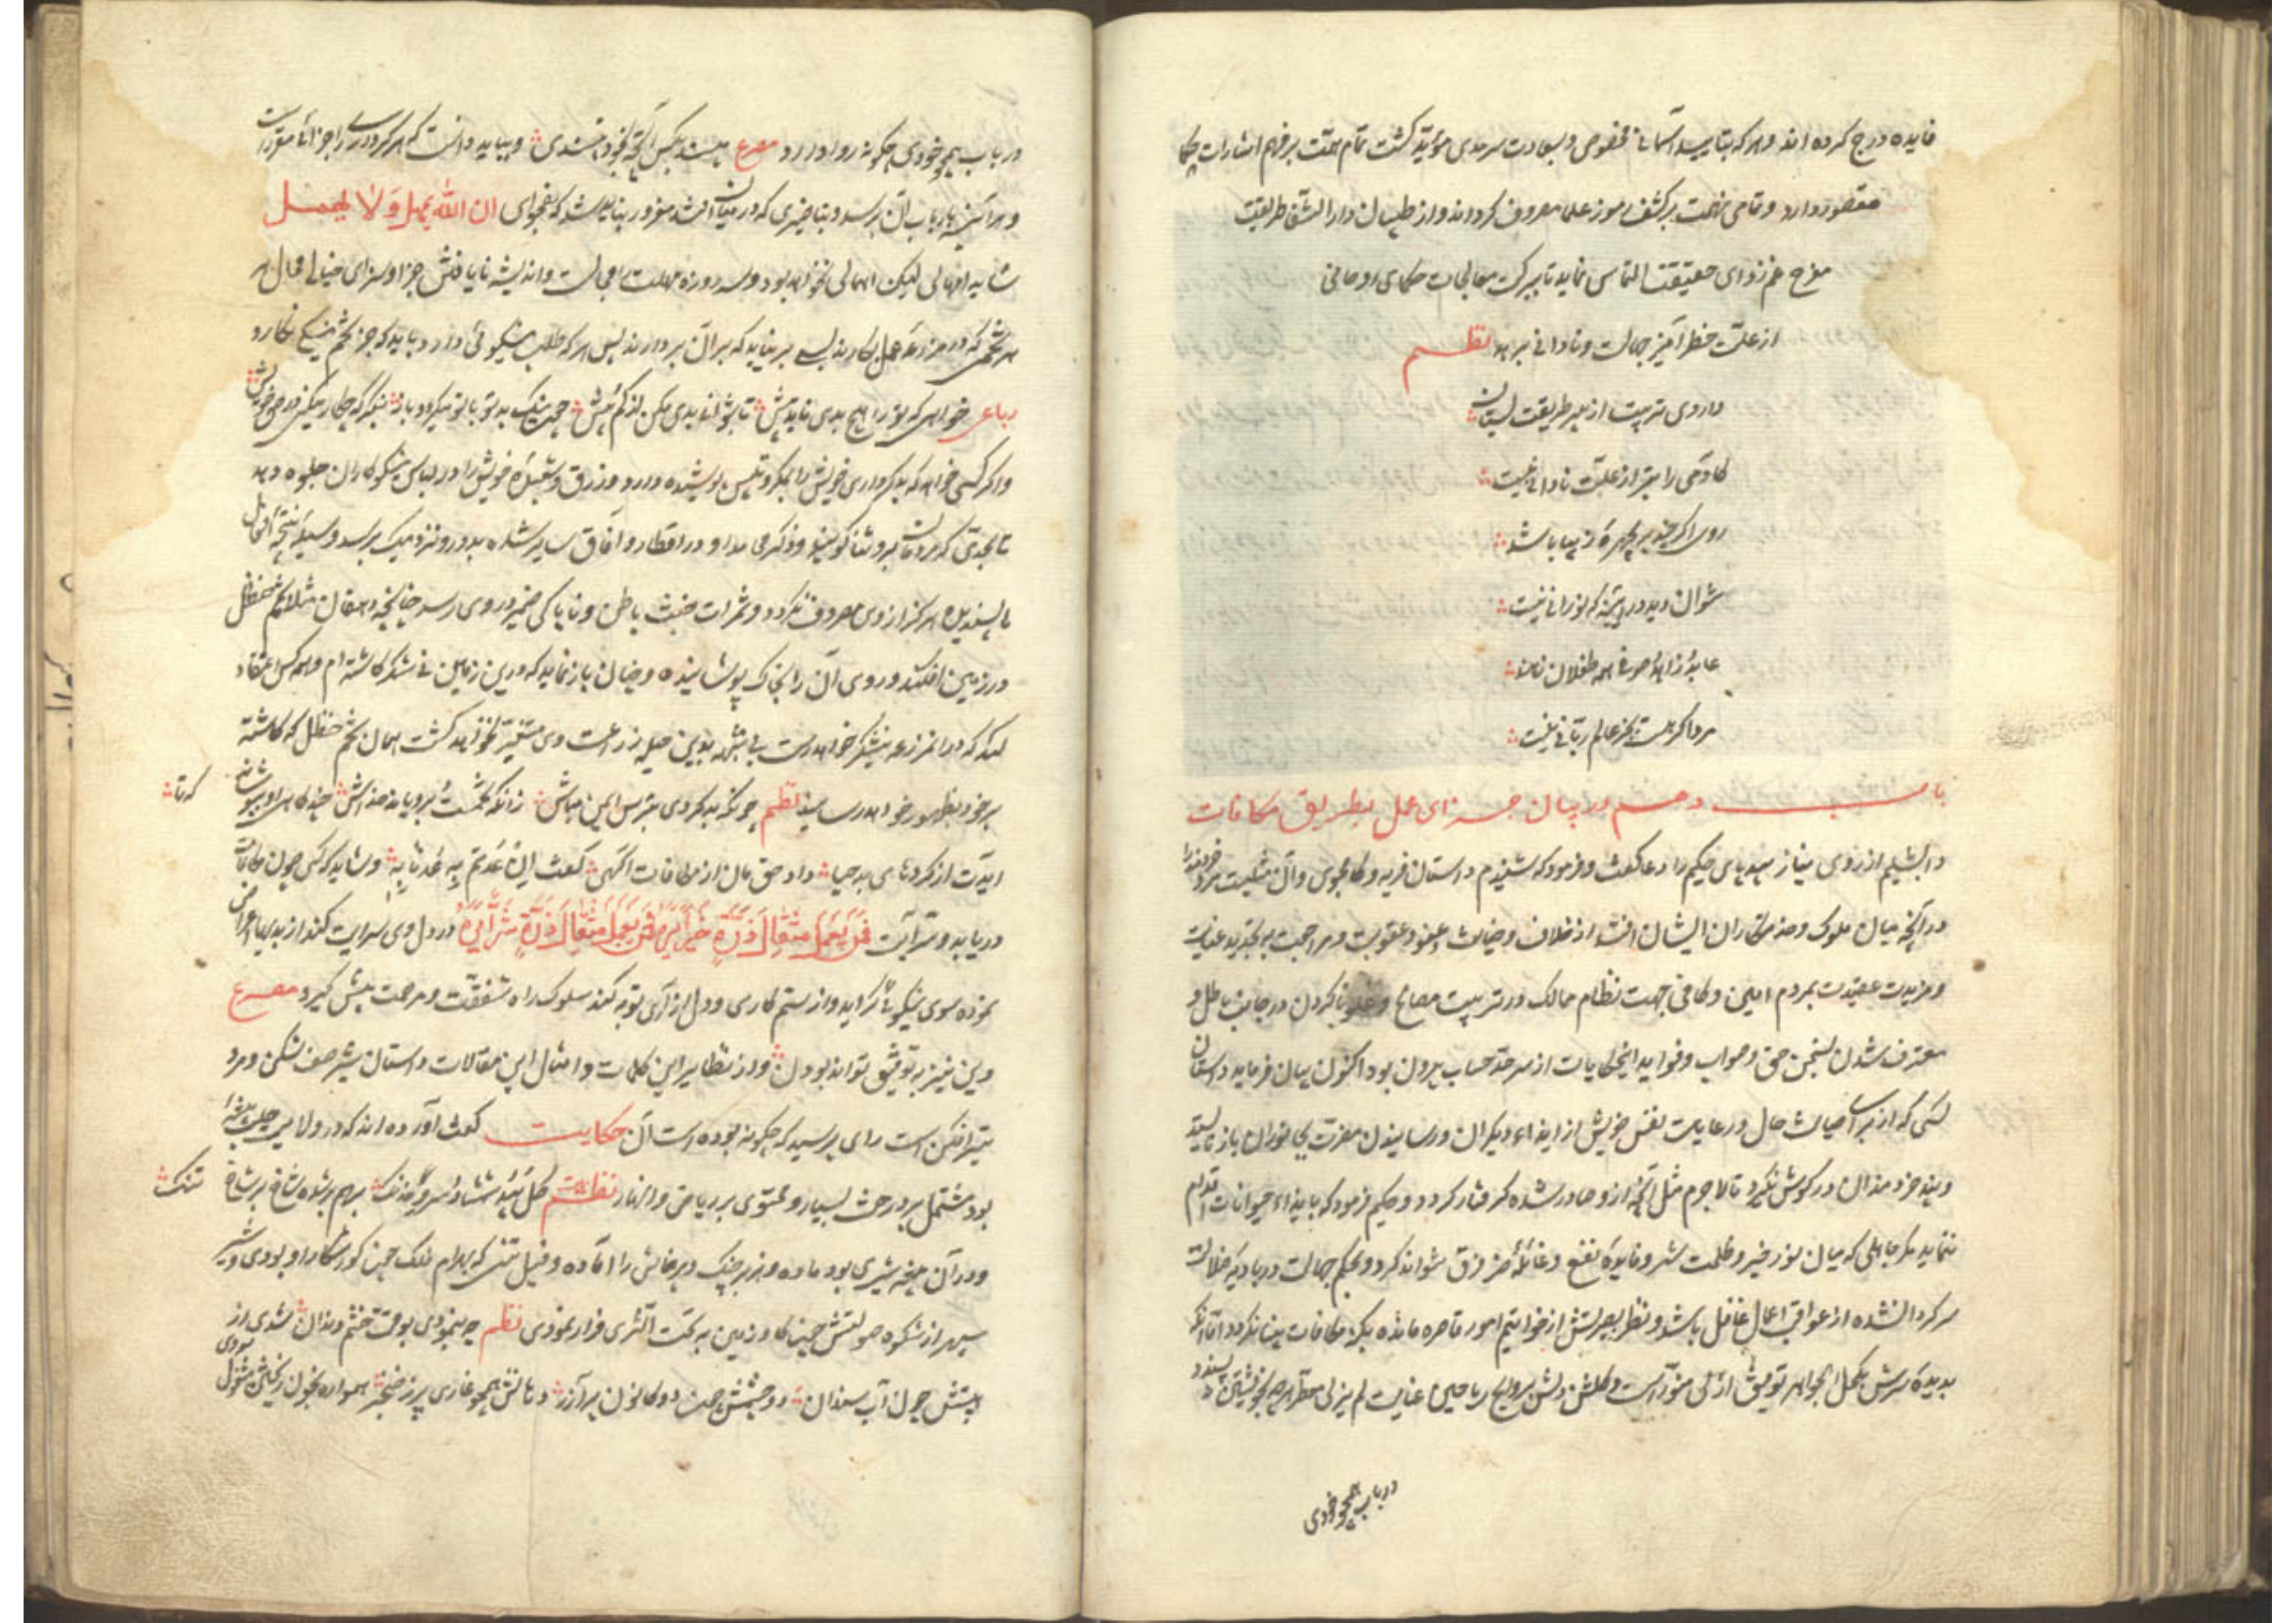 فایده درج کرده اند و هر که بتایید آسمانی مخصوص و بسعادت سرمدی مؤید گشت تمام همت بر فهم اشارات حکما
مقصور دارد و تمامی نهمت بر کشف رموز علما معروف کرداند و از طبیبان دار الشفا طریقت
مفرح غم زدای حقیقت التماس نماید تا ببرکت معالجات حکمای روحانی
از علت خطر آمیز جهالت و نادانی برهد نظم
داروی تربیت از پیر طریقت بستان
کادمی را بتر از علت نادانی نیست
روی اگر چند پریچهره و زیبا باشد
نتوان دید در آیینه که نورانی نیست
عابد و زاهد و صوفی همه طفلان رهند
مرد اگر هست بجز عالم ربانی نیست
باب دهم در بیان جزای عمل بطریق مکافات
دابشلیم از روی نیاز بیدپای حکیم را دعا گفت و فرمود که شنیدم داستان
در آنچه میان ملوک و خدمتکاران ایشان افتد از خلاف و خیانت و عفو و عقوبت و مراجعت به تجدید عنایت
و مزیت عقیدت بمردم امین و کافی جهت نظام ممالک و تربیت مصالح
معترف شدن بسخن حق و صواب و فواید این حکایات از سرحد حساب بیرون بود اکنون بیان فرماید داستان
کسی که از برای صیانت حال و رعایت نفس خویش از ایذاء دیگران و رسانیدن مضرت بجانوران باز نه ایستد
و پند خردمندان در گوش نگیرد تا لاجرم مثل آنچه از و صادر شده گرفتار گردد و حکیم فرمود که بایذاء حیوانات اقدام
ننماید مگر جاهلی که میان نور خیر و ظلمت شر و فایده نفع و غائله ضر فرق نتواند کرد و بحکم جهالت در بادیه ضلالت
سرگردان شده از عواقب اعمال غافل باشد و نظر بصیرتش از خواتیم امور قاصر مانده
بدیده سرش بکحل الجواهر توفیق ازلی منور است و گلشن دلش بروایح ریاحین عنایت لم یزلی معطر هر چه بخویشتن نپسندد
در باب همچو خودی
در باب همچو خودی چگونه روا دارد مصرع مپسند بکس آنچه بخود نپسندی و بباید دانست که هر کرداری را جزائی مقرر است
و هر آینه بارباب آن برسد و بتاخیری که در میان افتد مغرور نباید شد که بفحوای ان الله یمهل و لا یهمل
شاید امهالی لیکن اهمالی نخواهد بود و سه روزه مهلت و اندیشه نایافتن جزا و سزای خیالی محال
هر تخمی که در مزرعه عمل بکارند بسی بر نیاید که بر آن بردارند پس هر که طلب نیکویی دارد باید که جز تخم نیکی نکارد
رباعی خواهی که ترا هیچ بدی ناید پیش تا بتوانی بدی مکن از کم و بیش
و اگر کسی خواهد که بدکرداری خویش را بمکر و تلبیس پوشیده دارد و زرق و شعبده خویش را در لباس نیکوکاران جلوه دهد
تا بحدی که مردمان برو ثنا گویند و ذکر محامد او در اقطار و آفاق سایر شده بدور و نزدیک برسد و نتیجه افعال
ناپسندیده هرگز از وی مصروف نگردد و ثمرات خبث باطن و ناپاکی ضمیر در وی رسد چنانچه دهقان مثلا تخم حنظل
در زمین افکند و روی آن را بخاک پوشانیده و چنان باز نماید که درین زمین نی شکر کاشته ام و همه کس اعتقاد
کند که در آن مزرعه نیشکر خواهد رست بی شبهه بدین حیله زراعت وی متغیر نخواهد گشت همان تخم حنظل که کاشته
بر خود بظهور خواهد رسانید نظم چونکه بد کردی بترس ایمن مباش زانکه تخمست و برویاند خداش چند گاهی او بپوشاند
که تا
آیدت از کردهای بد حیا داد حق مان از مکافات آگهی گفت ان عدتم به عدنا به و شاید که کسی چون مکافات
دریابد و سر آیت فمن یعمل مثقال ذرة خیرا یره و من یعمل مثقال ذرة شرا یره در دل وی سرایت کند از بدیها اعراض
نموده سوی نیکوییها گراید و از ستم کاری و دل آزاری توبه کند سلوک راه شفقت و مرحمت پیش گیرد مصرع
وین نیز بتوفیق تواند بودن و از نظایر این کلمات و امثال این مقالات داستان شیر صف شکن و مرد
تیر افکن است رای پرسید که چگونه بوده است آن حکایت گفت آورده اند که در ولایت حلب بیشه
بود مشتمل بر درخت بسیار و محتوی بر ریاحین و انهار نظم بر هم برشده شاخ بر شاخ
تنگ
و در آن بیشه شیری بود ماده و هزبر جنگ و پرخاش را آماده و فیل تنی که بهرام فلک چون گور شکار او بودی و شیر
سپهر از شکوه صولتش چون گاو زمین به تحت الثری فرار نمودی نظم چو بنمودی بوقت خشم دندان شدی از
چون آب سندان دو چشمش چون دو کانون پر آذر دهانش همچو غاری پر ز خنجر همواره بخون ریختن مشغول
بودی